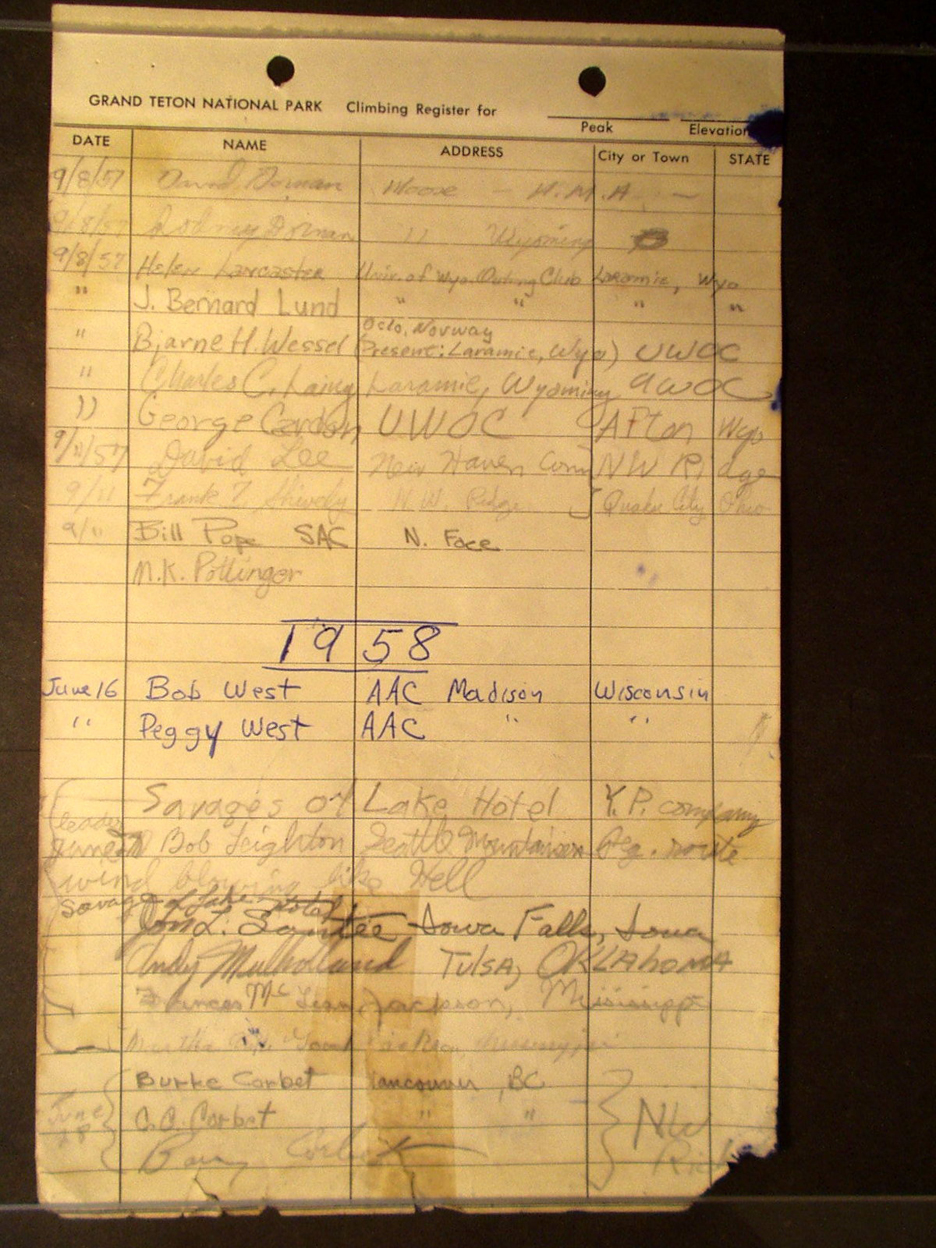 GRAND TETON NATIONAL PARK Climbing Register for
Peak Elevation
DATE NAME ADDRESS City or Town STATE
9/8/57 David Dornan Moose W.M.A.
9/8/57 Dornan " Wyoming
9/8/57 Helen Lancaster Univ. of Wyo. Outing Club Laramie, Wyo
" J. Bernard Lund " " " "
Oslo, Norway
" Bjarne H. Wessel (Present: Laramie, Wyo) UWOC
" Charles C. Laing Laramie, Wyoming UWOC
" George Cardon UWOC Afton Wyo
9/11/57 David Lee New Haven Conn NW Ridge
9/11 Frank T. Shively N.W. Ridge Quaker City Ohio
9/11 Bill Pope SAC N. Face
M.K. Pottinger
1958
June 16 Bob West AAC Madison Wisconsin
" Peggy West AAC " "
Savages of Lake Hotel Y.P. company
leader Bob Leighton Seattle Mountaineer Reg. route
wind blowing like Hell
Savages of Lake Hotel
Jon L. Santee Iowa Falls, Iowa
Andy Mulholland Tulsa, OKLAHOMA
Frances Mc Jackson, Mississippi
Martha
Burke Corbet Vancouver, BC
June 28 C.C. Corbet " " NW
Barry Corbet